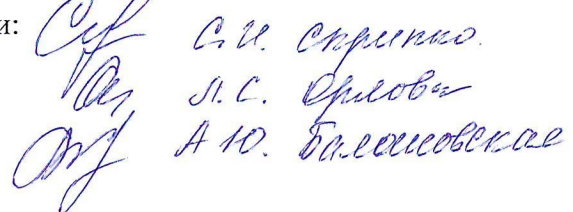 и: С.И. Скрипко.
Л.С. Орлова
А Ю. Балашовская